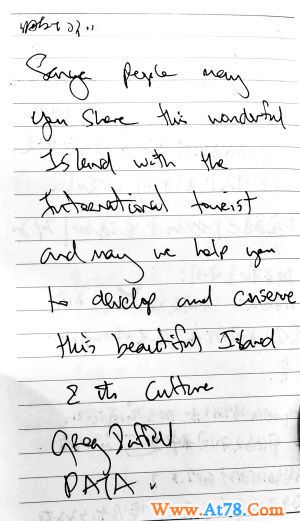 people may
you share this wonderful
Island with the
International tourist
and may we help you
to develop and conserve
this beautiful Island
& its culture
Greg Duffell
PATA.
Www.At78.Com